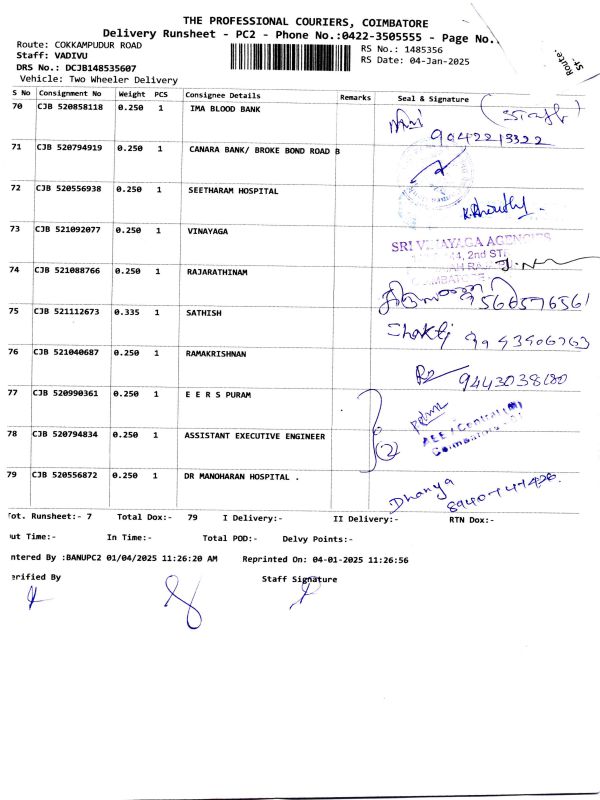 THE PROFESSIONAL COURIERS, COIMBATORE
Delivery Runsheet - PC2 - Phone No.:0422-3505555 - Page No.
Route: COKKAMPUDUR ROAD
RS No.: 1485356
Staff: VADIVU
RS Date: 04-Jan-2025
DRS No.: DCJB148535607
Vehicle: Two Wheeler Delivery
St.
Route:
S No Consignment No Weight PCS Consignee Details Remarks Seal & Signature
70 CJB 520858118 0.250 1 IMA BLOOD BANK
9042213322
71 CJB 520794919 0.250 1 CANARA BANK/ BROKE BOND ROAD B
72 CJB 520556938 0.250 1 SEETHARAM HOSPITAL
73 CJB 521092077 0.250 1 VINAYAGA
SRI VINAYAGA AGENCIES
2nd
74 CJB 521088766 0.250 1 RAJARATHINAM
9566576561
75 CJB 521112673 0.335 1 SATHISH
Shakti 9943906763
76 CJB 521040687 0.250 1 RAMAKRISHNAN
9443038680
77 CJB 520990361 0.250 1 E E R S PURAM
78 CJB 520794834 0.250 1 ASSISTANT EXECUTIVE ENGINEER
2
79 CJB 520556872 0.250 1 DR MANOHARAN HOSPITAL .
Dhanya
Tot. Runsheet:- 7 Total Dox:- 79 I Delivery:- II Delivery:- RTN Dox:-
ut Time:- In Time:- Total POD:- Delvy Points:-
ntered By :BANUPC2 01/04/2025 11:26:20 AM Reprinted On: 04-01-2025 11:26:56
erified By Staff Signature